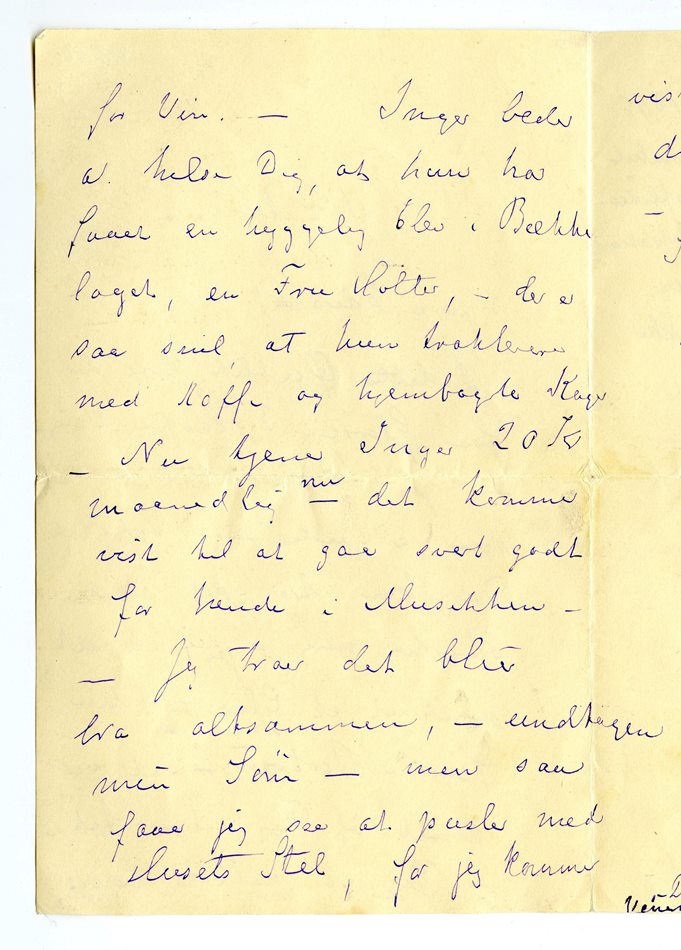 for Vin. — Inger beder
at hilse Dig, at hun har
faaet en hyggelig Elev i Bække
laget, en Fru Holter, — der er
saa snil, at hun trakterer
med Kaffe og hjembagte Kager
— Nu tjener Inger 20 Kr
maanedlig nu — det kommer
vist til at gaa svært godt
for hende i Musikken —
— Jeg troer det blir
bra altsammen, — undtagen
min Søvn — men saa
faar jeg see at pusle med
Husets Stel, for jeg kommer
vis
d
—